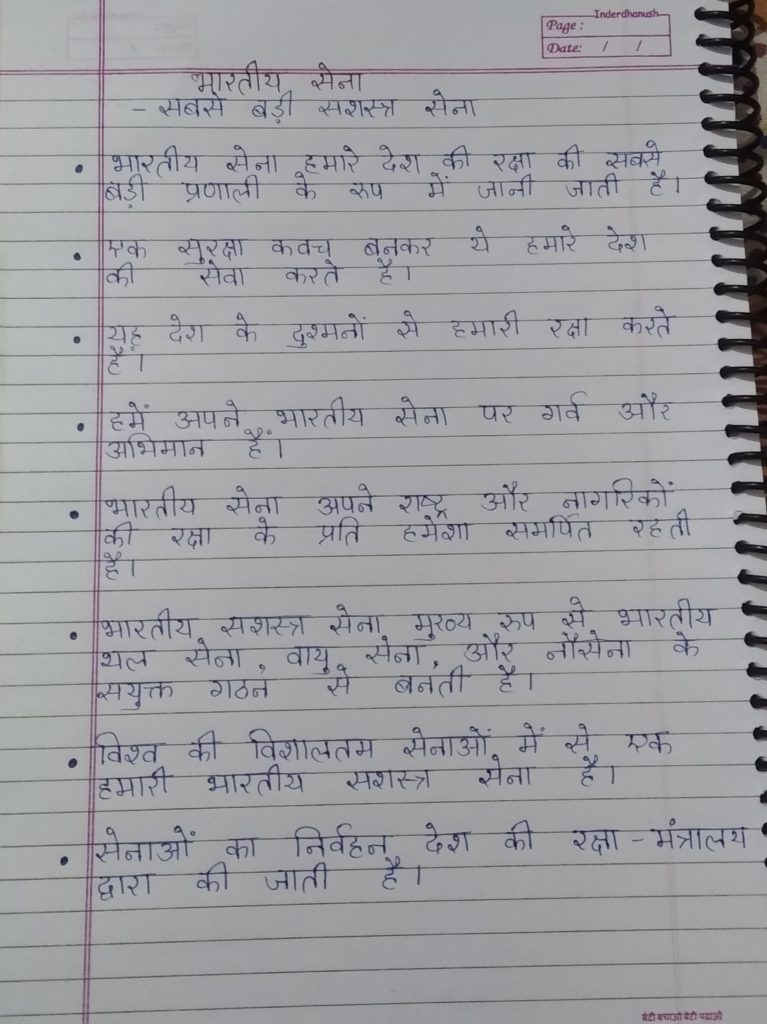 Inderdhanush
Page :
Date: / /
भारतीय सेना
- सबसे बड़ी सशस्त्र सेना
• भारतीय सेना हमारे देश की रक्षा की सबसे
बड़ी प्रणाली के रुप में जानी जाती है।
• एक सुरक्षा कवच बनकर ये हमारे देश
की सेवा करते है।
• यह देश के दुश्मनों से हमारी रक्षा करते
है।
• हमें अपने भारतीय सेना पर गर्व और
अभिमान हैं।
• भारतीय सेना अपने राष्ट्र और नागरिकों
की रक्षा के प्रति हमेशा समर्पित रहती
है।
• भारतीय सशस्त्र सेना मुख्य रुप से भारतीय
थल सेना, वायु सेना, और नौसेना के
सयुक्त गठन से बनती है।
• विश्व की विशालतम सेनाओं में से एक
हमारी भारतीय सशस्त्र सेना है।
• सेनाओं का निर्वहन देश की रक्षा - मंत्रालय
द्वारा की जाती है।
बेटी बचाओ बेटी पढ़ाओ